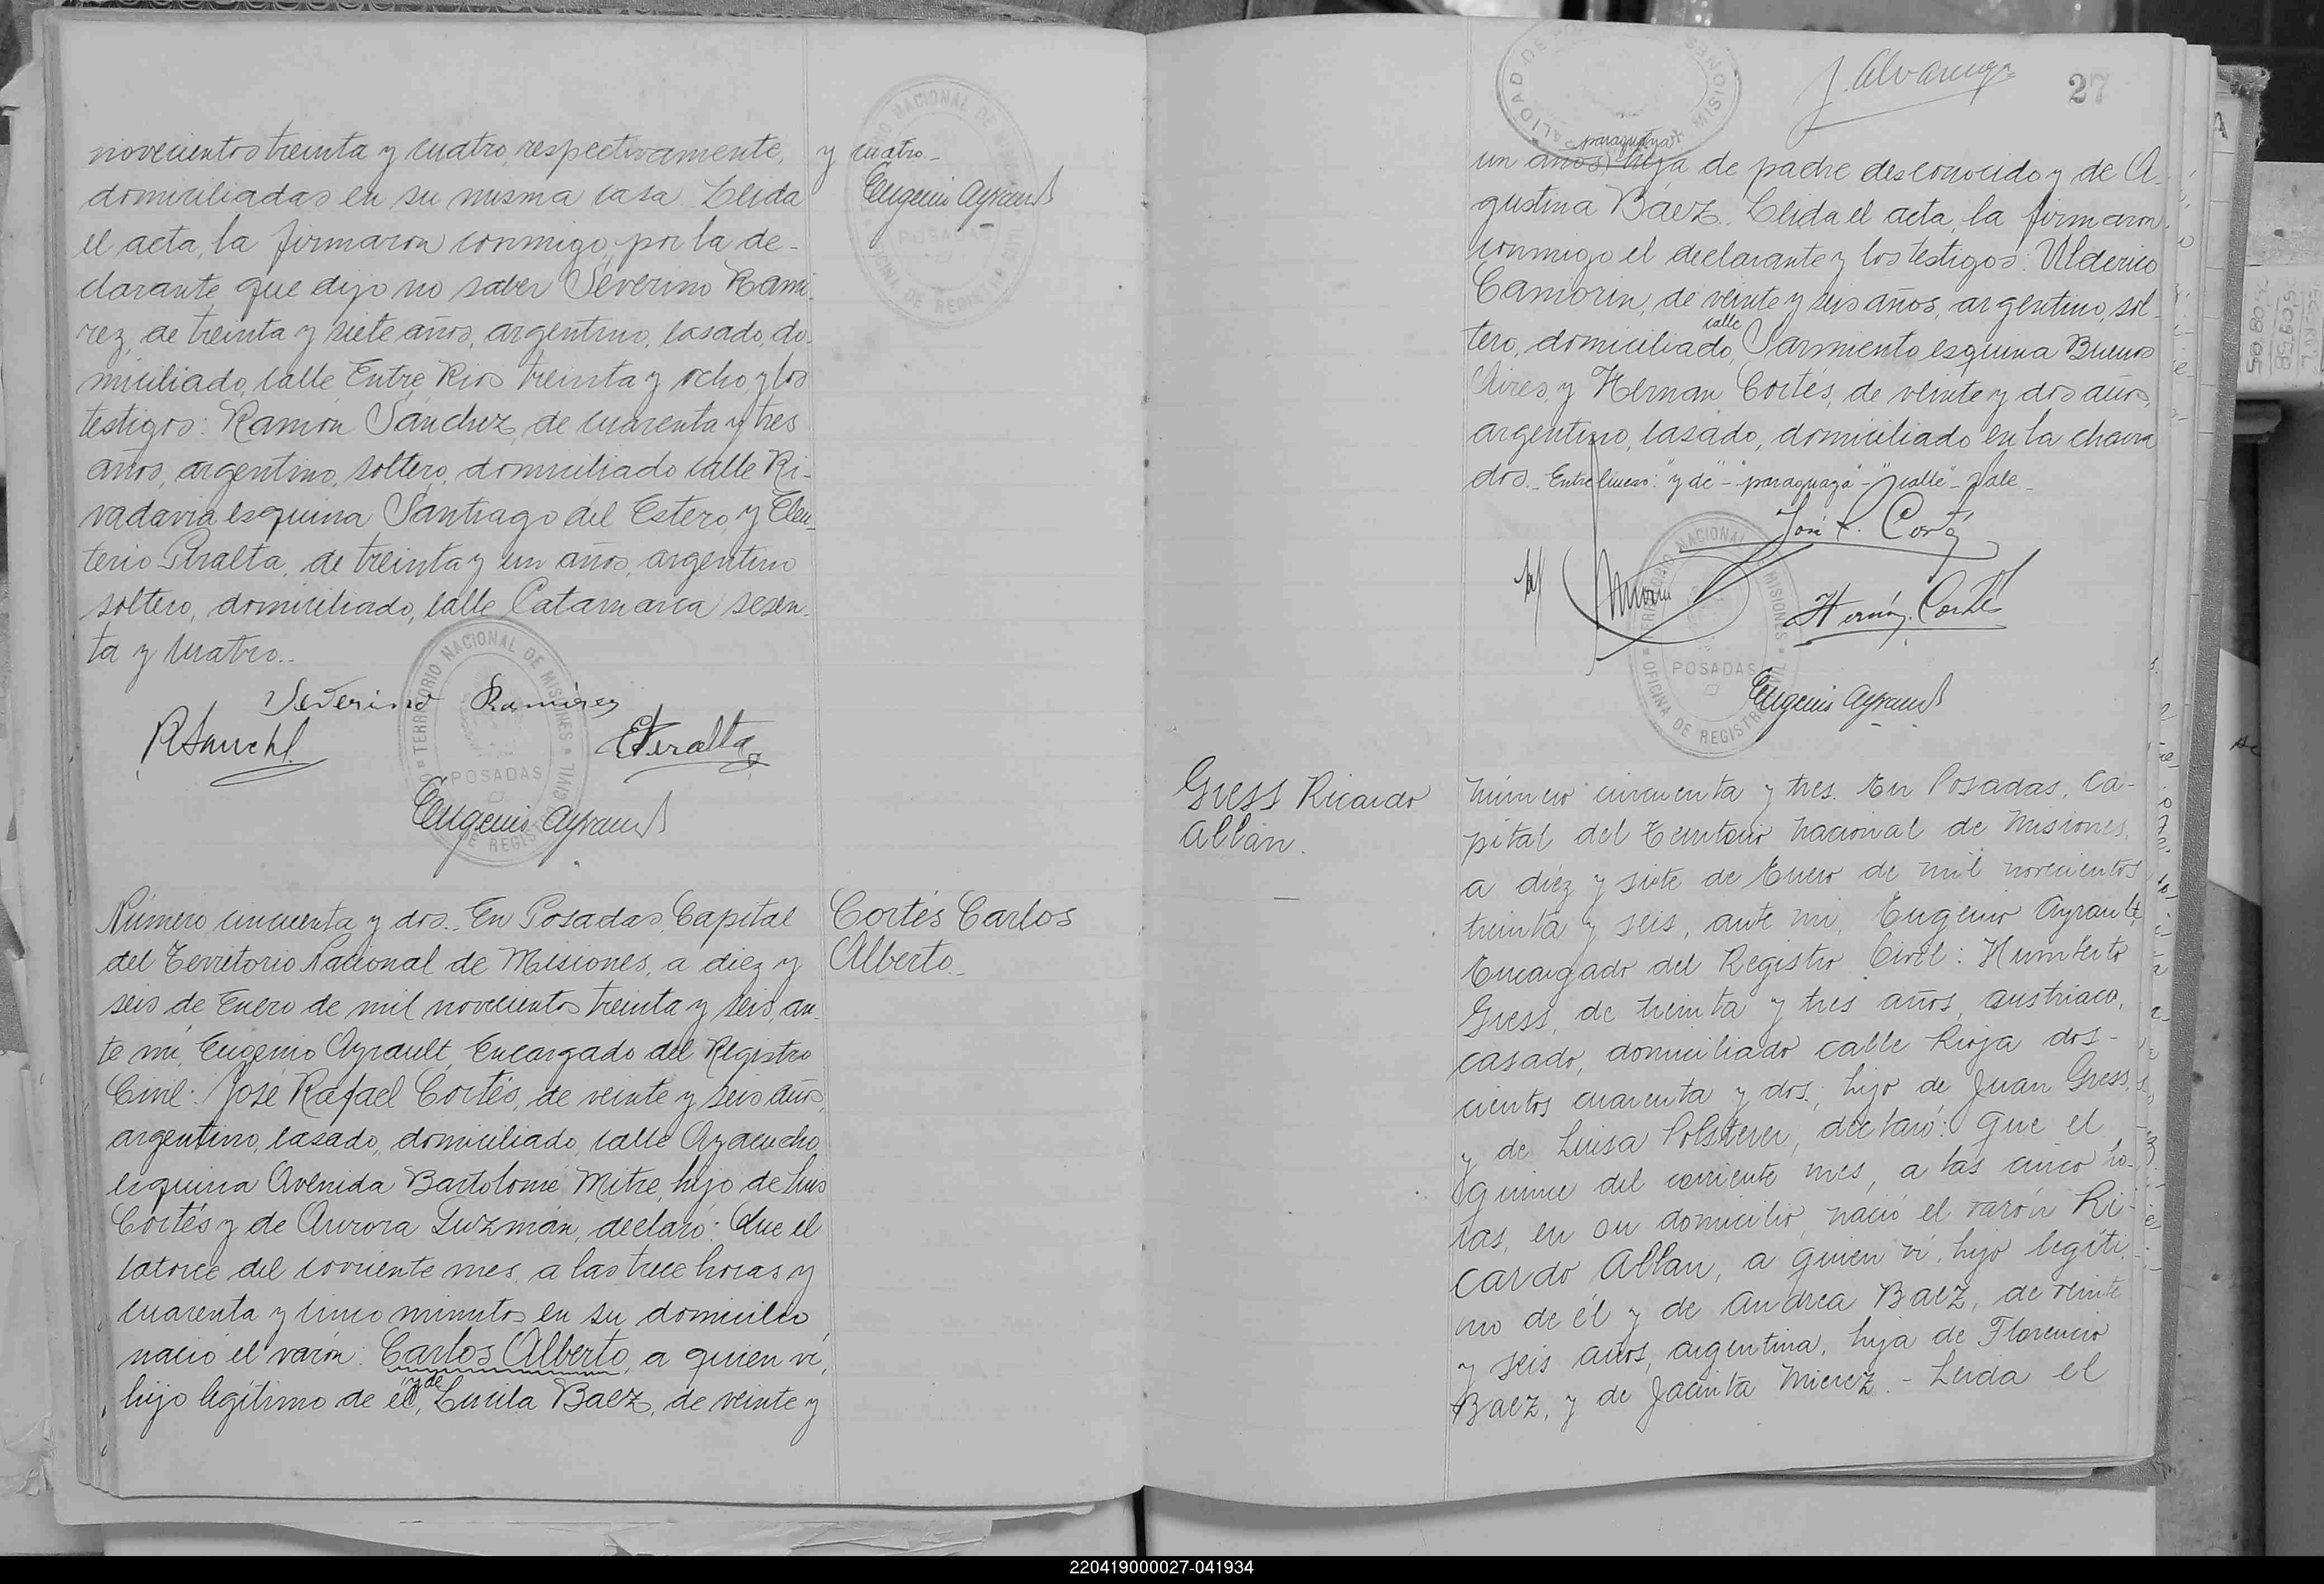 novecientos treinta y cuatro, respectivamente,
domiciliadas en su misma casa. Leída
el acta, la firmaron conmigo, por la de-
clarante que dijo no saber Severino Rami-
rez, de treinta y siete años, argentino, casado, do-
miciliado, calle Entre Rios treinta y ocho, y los
testigos: Ramón Sánchez, de cuarenta y tres
años, argentino, soltero, domiciliado calle Ri-
vadavia esquina Santiago del Estero, y Eleu-
terio Peralta, de treinta y un años, argentino
soltero, domiciliado, calle Catamarca sesen-
ta y cuatro.-
Severino Ramírez
RSanchz
EPeralta
TERRITORIO NACIONAL DE MISIONES
POSADAS
OFICINA DE REGISTRO CIVIL
Eugenio Ayrault
y cuatro.-
Eugenio Ayrault
NACIONAL DE
POSADAS
OFICINA DE REGISTRO CIVIL
Número cincuenta y dos.. En Posadas, Capital
del Territorio Nacional de Misiones, a diez y
seis de Enero de mil novecientos treinta y seis, an-
te mí, Eugenio Ayrault, Encargado del Registro
Civil: José Rafael Cortés, de veinte y seis años,
argentino, casado, domiciliado, calle Ayacucho
esquina Avenida Bartolomé Mitre, hijo de Luis
Cortés y de Aurora Guzmán, declaró: Que el
catorce del corriente mes, a las trece horas y
cuarenta y cinco minutos en su domicilio,
nació el varón: Carlos Alberto, a quien ví,
hijo legítimo de él, y de Lucila Baez, de veinte y
Cortés Carlos
Alberto.-
J. Alvarenga
27
un años, paraguaya, hija de padre desconocido y de A-
gustina Báez. Leída el acta, la firmaron
conmigo el declarante y los testigos: Ulderico
Camorin, de veinte y seis años, argentino, sol-
tero, domiciliado, calle Sarmiento esquina Buenos
Aires, y Hernan Cortés, de veinte y dos años,
argentino, casado, domiciliado en la chacra
dos.- Entre lineas: "y de" - "paraguaya" - "calle" - Vale -
José R. Cortés
Hernán Cortés
TERRITORIO NACIONAL DE MISIONES
POSADAS
OFICINA DE REGISTRO CIVIL
Eugenio Ayrault
Gress Ricardo
Allan.
Número cincuenta y tres. En Posadas, Ca-
pital del Territorio Nacional de Misiones,
a diéz y siete de Enero de mil novecientos
treinta y seis, ante mi, Eugenio Ayrault,
Encargado del Registro Civil: Humberto
Gress, de treinta y tres años, austriaco,
casado, domiciliado calle Rioja dos-
cientos cuarenta y dos, hijo de Juan Gress,
y de Luisa Polsterer, declaró: Que el
quince del corriente mes, a las cinco ho-
ras, en su domicilio, nació el varón Ri-
cardo Allan, a quien ví, hijo legíti-
mo de él y de Andrea Baez, de veinte
y seis años, argentina, hija de Florencio
Baez, y de Jacinta Mierez.- Leida el
220419000027-041934